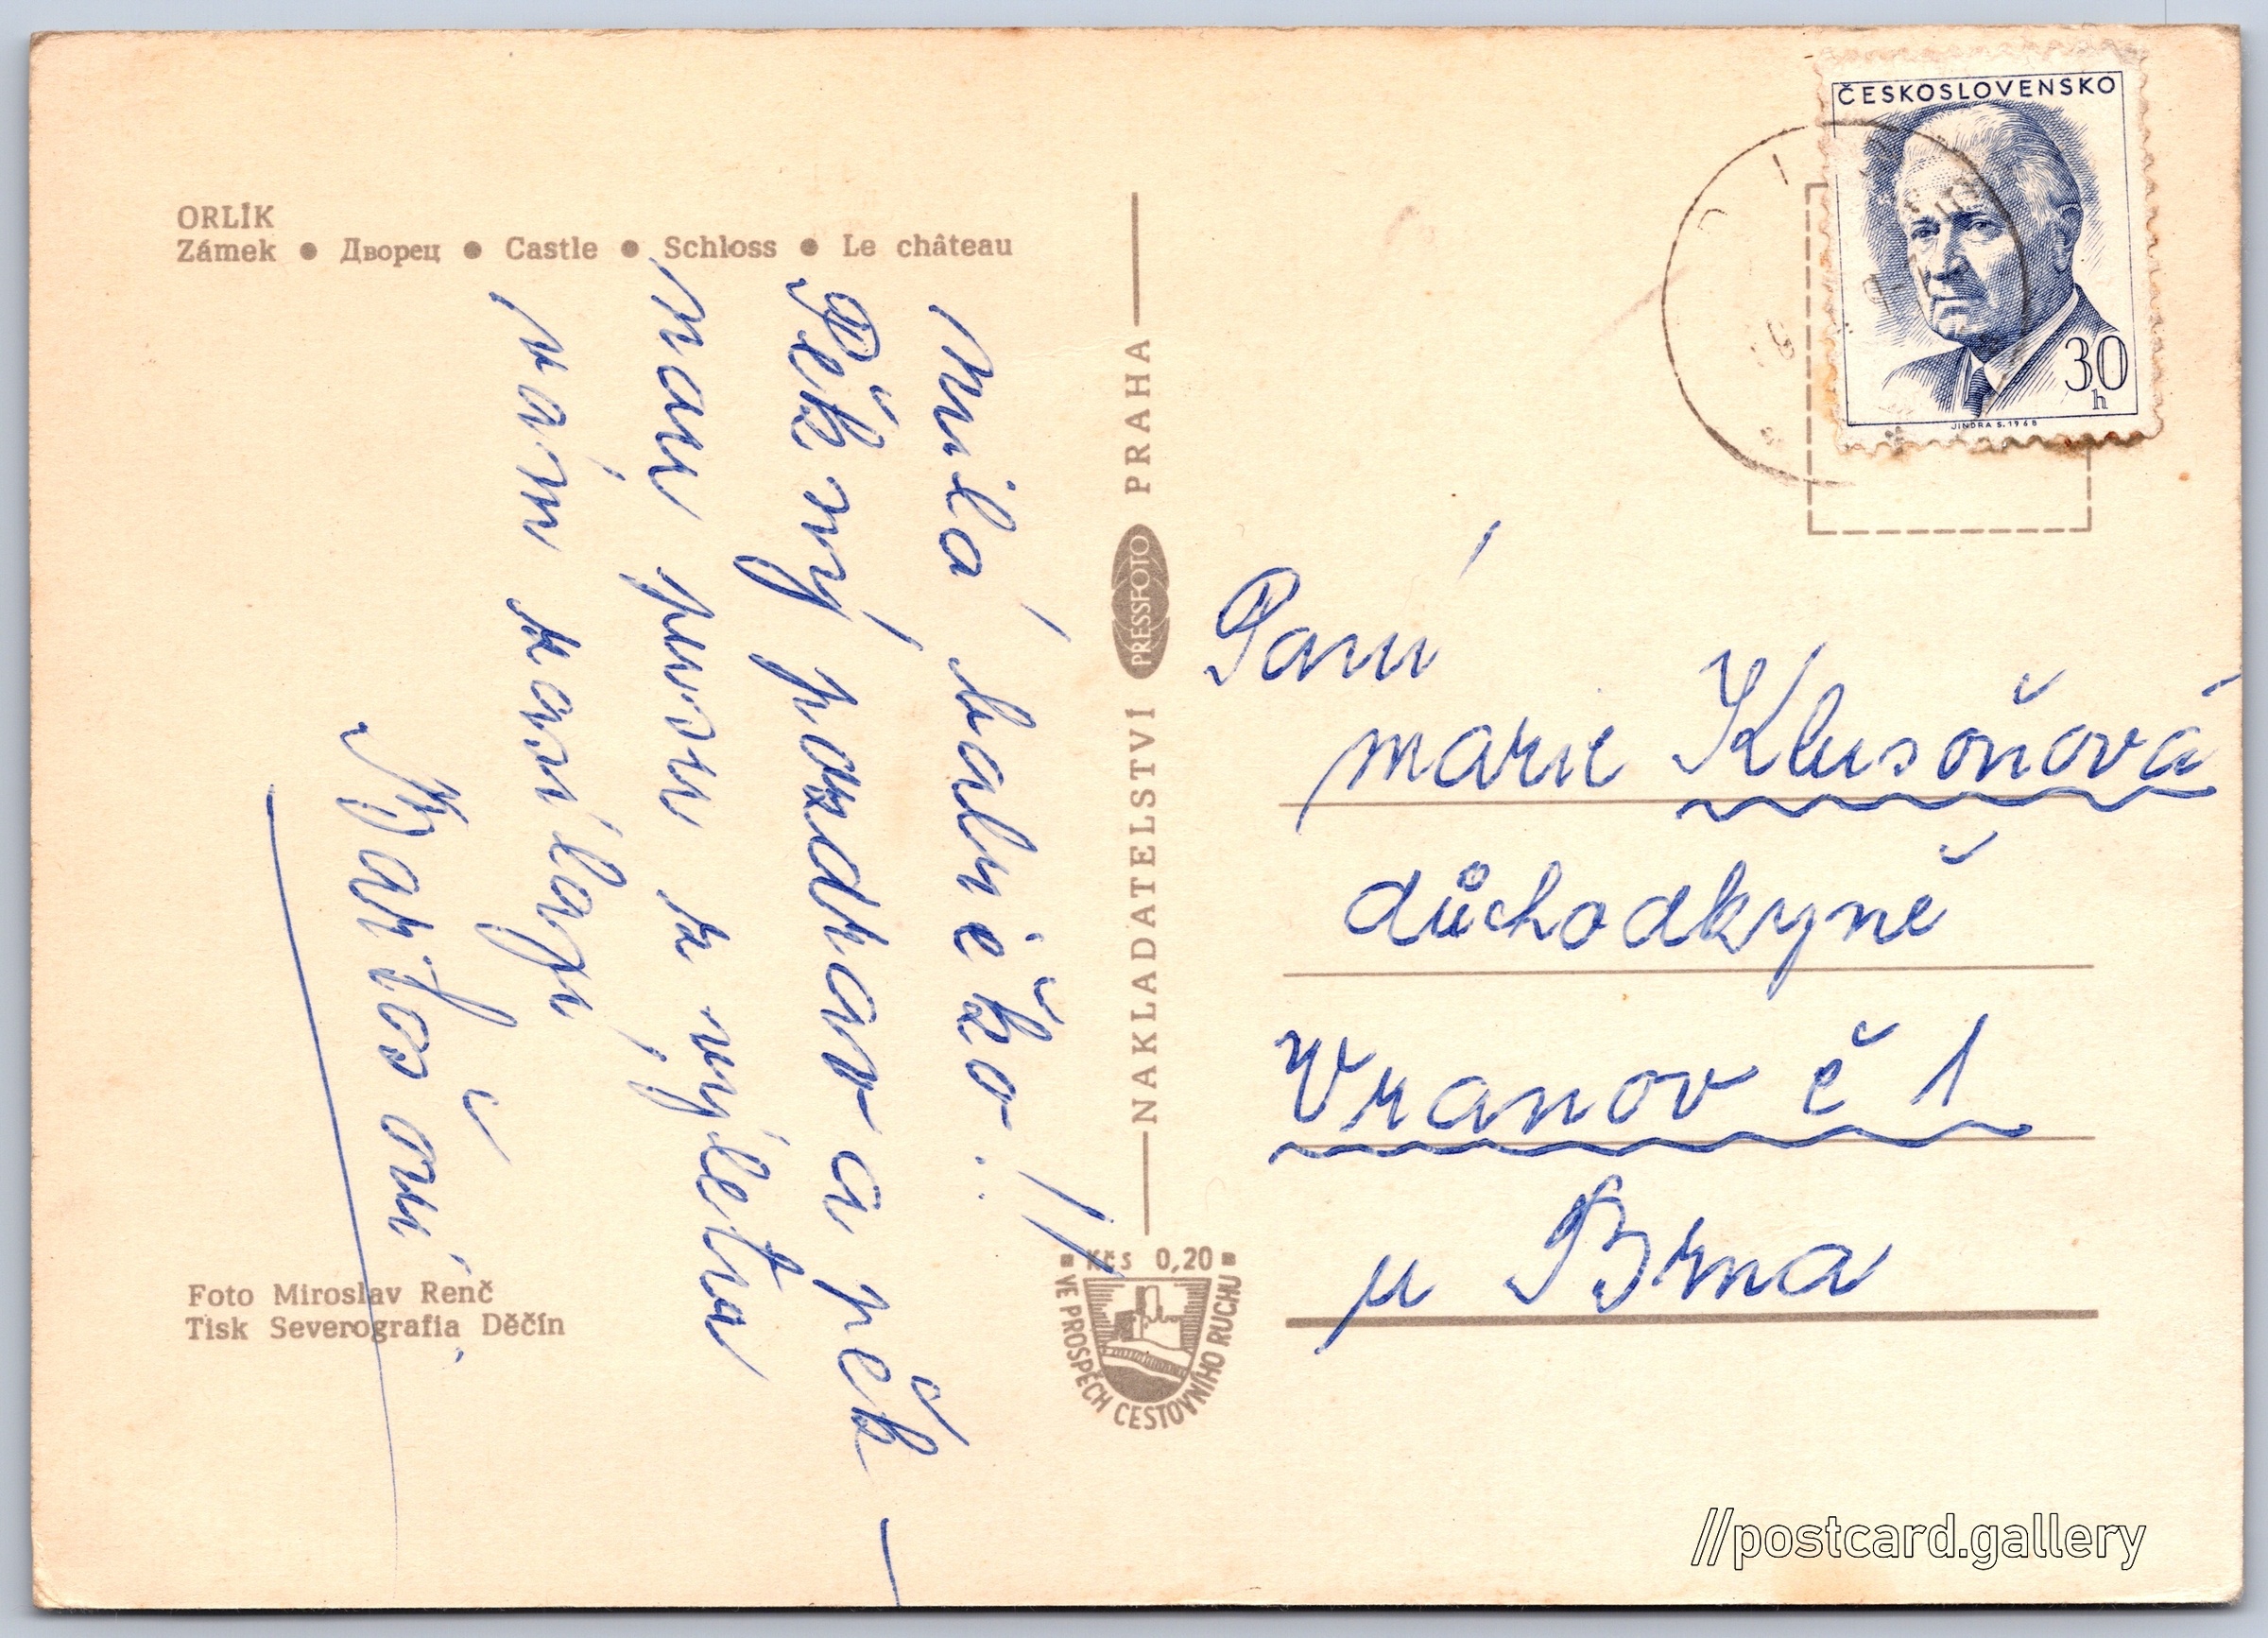 ORLÍK
Zámek ● Дворец ● Castle ● Schloss ● Le château
milá babičko!
Pěkný pozdrav a pěk-
nou pusu z výletu
vám zasílají
Bartošovi
Foto Miroslav Renč
Tisk Severografia Děčín
NAKLADATELSTVÍ PRESSFOTO PRAHA
Kčs 0,20
VE PROSPĚCH CESTOVNÍHO RUCHU
ČESKOSLOVENSKO
30
h
JINDRA S. 1968
Paní
marie Klusoňová
důchodkyně
Vranov č 1
u Brna
//postcard.gallery